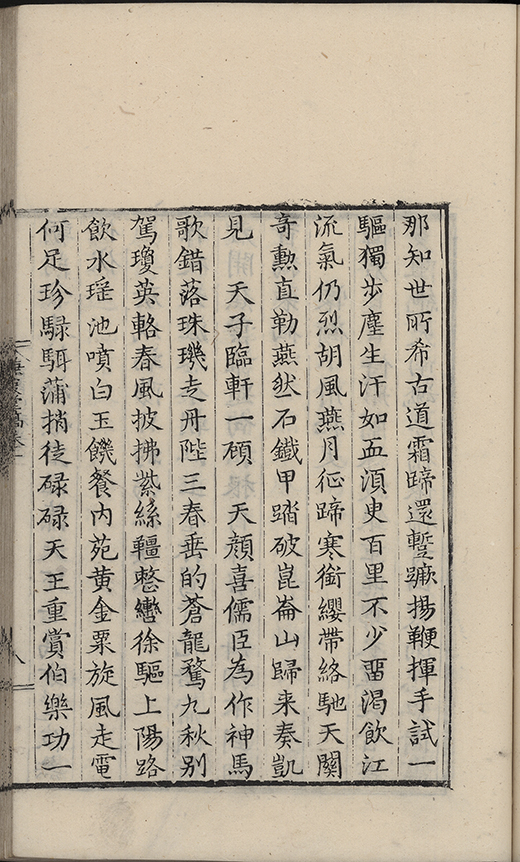 那知世所希古道霜蹄還蹔蹶揚鞭揮手試一
驅獨步塵生汗如血湏臾百里不少畱渴飲江
流氣仍烈胡風燕月征蹄寒銜纓帶絡馳天關
竒勳直勒燕然石鐵甲踏破崑崙山歸来奏凱
見　天子臨軒一頋　天顔喜儒臣為作神馬
歌錯落珠璣走丹陛三春垂的蒼龍騖九秋别
駕瓊英輅春風披拂紫絲韁整轡徐驅上陽路
飲水瑶池噴白玉饑餐内苑黄金粟旋風走電
何足珍騄駬蒲捎徒碌碌天王重賞伯樂功一